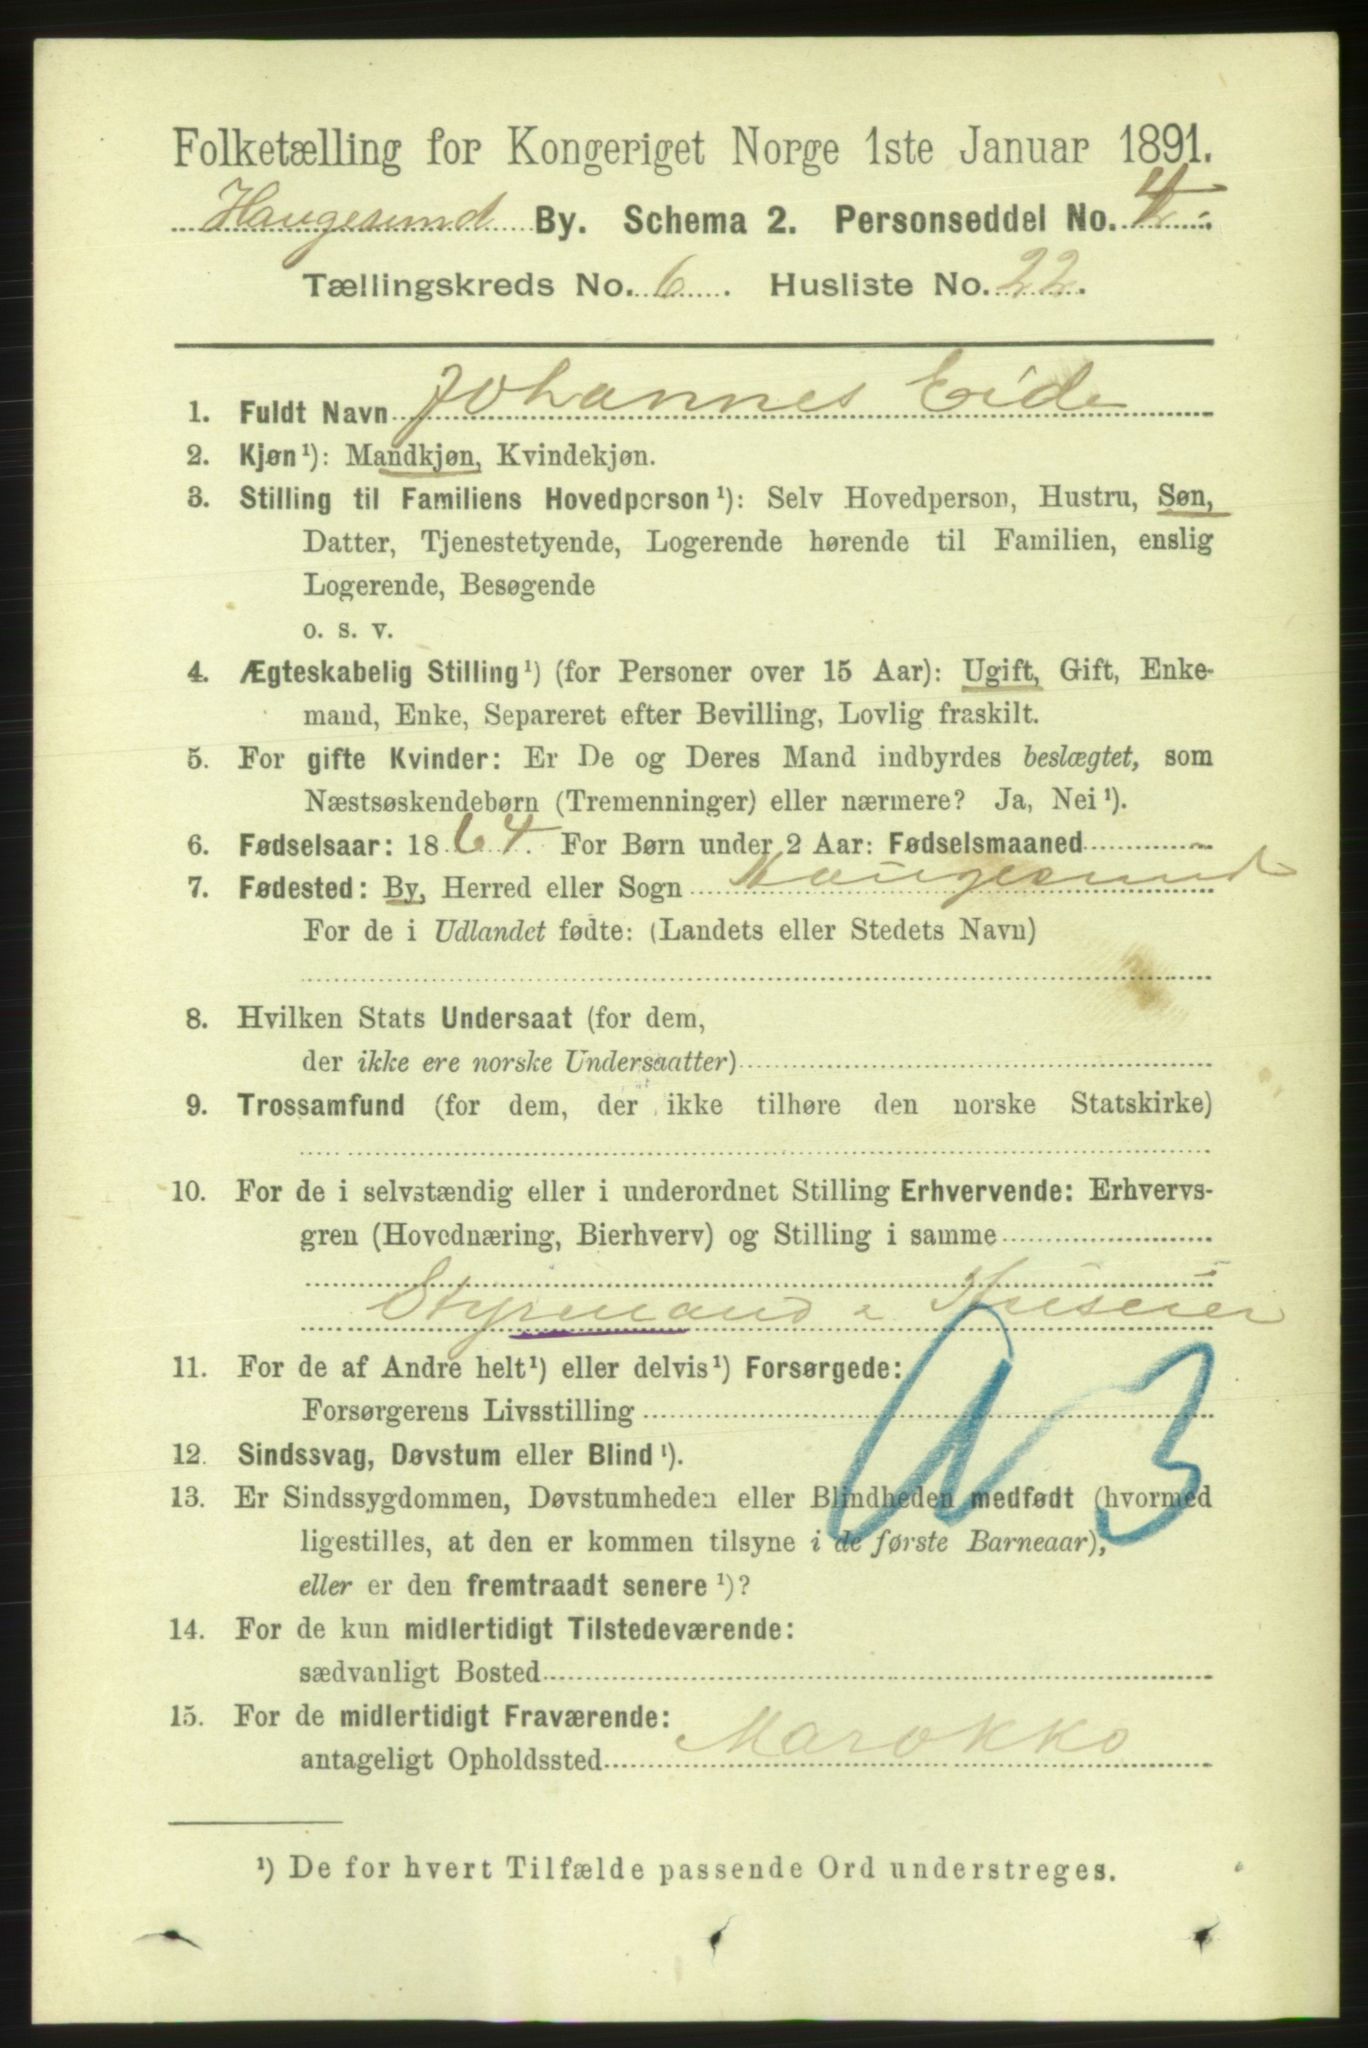 Folketælling for Kongeriget Norge 1ste Januar 1891.
Haugesund By. Schema 2. Personseddel No. 4
Tællingskreds No. 6. Husliste No. 22.
1. Fuldt Navn Johannes Eide
2. Kjøn¹): Mandkjøn, Kvindekjøn.
3. Stilling til Familiens Hovedperson¹): Selv Hovedperson, Hustru, Søn,
Datter, Tjenestetyende, Logerende hørende til Familien, enslig
Logerende, Besøgende
o. s. v.
4. Ægteskabelig Stilling¹) (for Personer over 15 Aar): Ugift, Gift, Enke-
mand, Enke, Separeret efter Bevilling, Lovlig fraskilt.
5. For gifte Kvinder: Er De og Deres Mand indbyrdes beslægtet, som
Næstsøskendebørn (Tremenninger) eller nærmere? Ja, Nei¹).
6. Fødselsaar: 1864. For Børn under 2 Aar: Fødselsmaaned
7. Fødested: By, Herred eller Sogn Haugesund
For de i Udlandet fødte: (Landets eller Stedets Navn)
8. Hvilken Stats Undersaat (for dem,
der ikke ere norske Undersaatter)
9. Trossamfund (for dem, der ikke tilhøre den norske Statskirke)
10. For de i selvstændig eller i underordnet Stilling Erhvervende: Erhvervs-
gren (Hovednæring, Bierhverv) og Stilling i samme
Styrmand
11. For de af Andre helt¹) eller delvis¹) Forsørgede:
Forsørgerens Livsstilling
12. Sindssvag, Døvstum eller Blind¹).
13. Er Sindssygdommen, Døvstumheden eller Blindheden medfødt (hvormed
ligestilles, at den er kommen tilsyne i de første Barneaar),
eller er den fremtraadt senere¹)?
14. For de kun midlertidigt Tilstedeværende:
sædvanligt Bosted
15. For de midlertidigt Fraværende:
antageligt Opholdssted Marokko
¹) De for hvert Tilfælde passende Ord understreges.